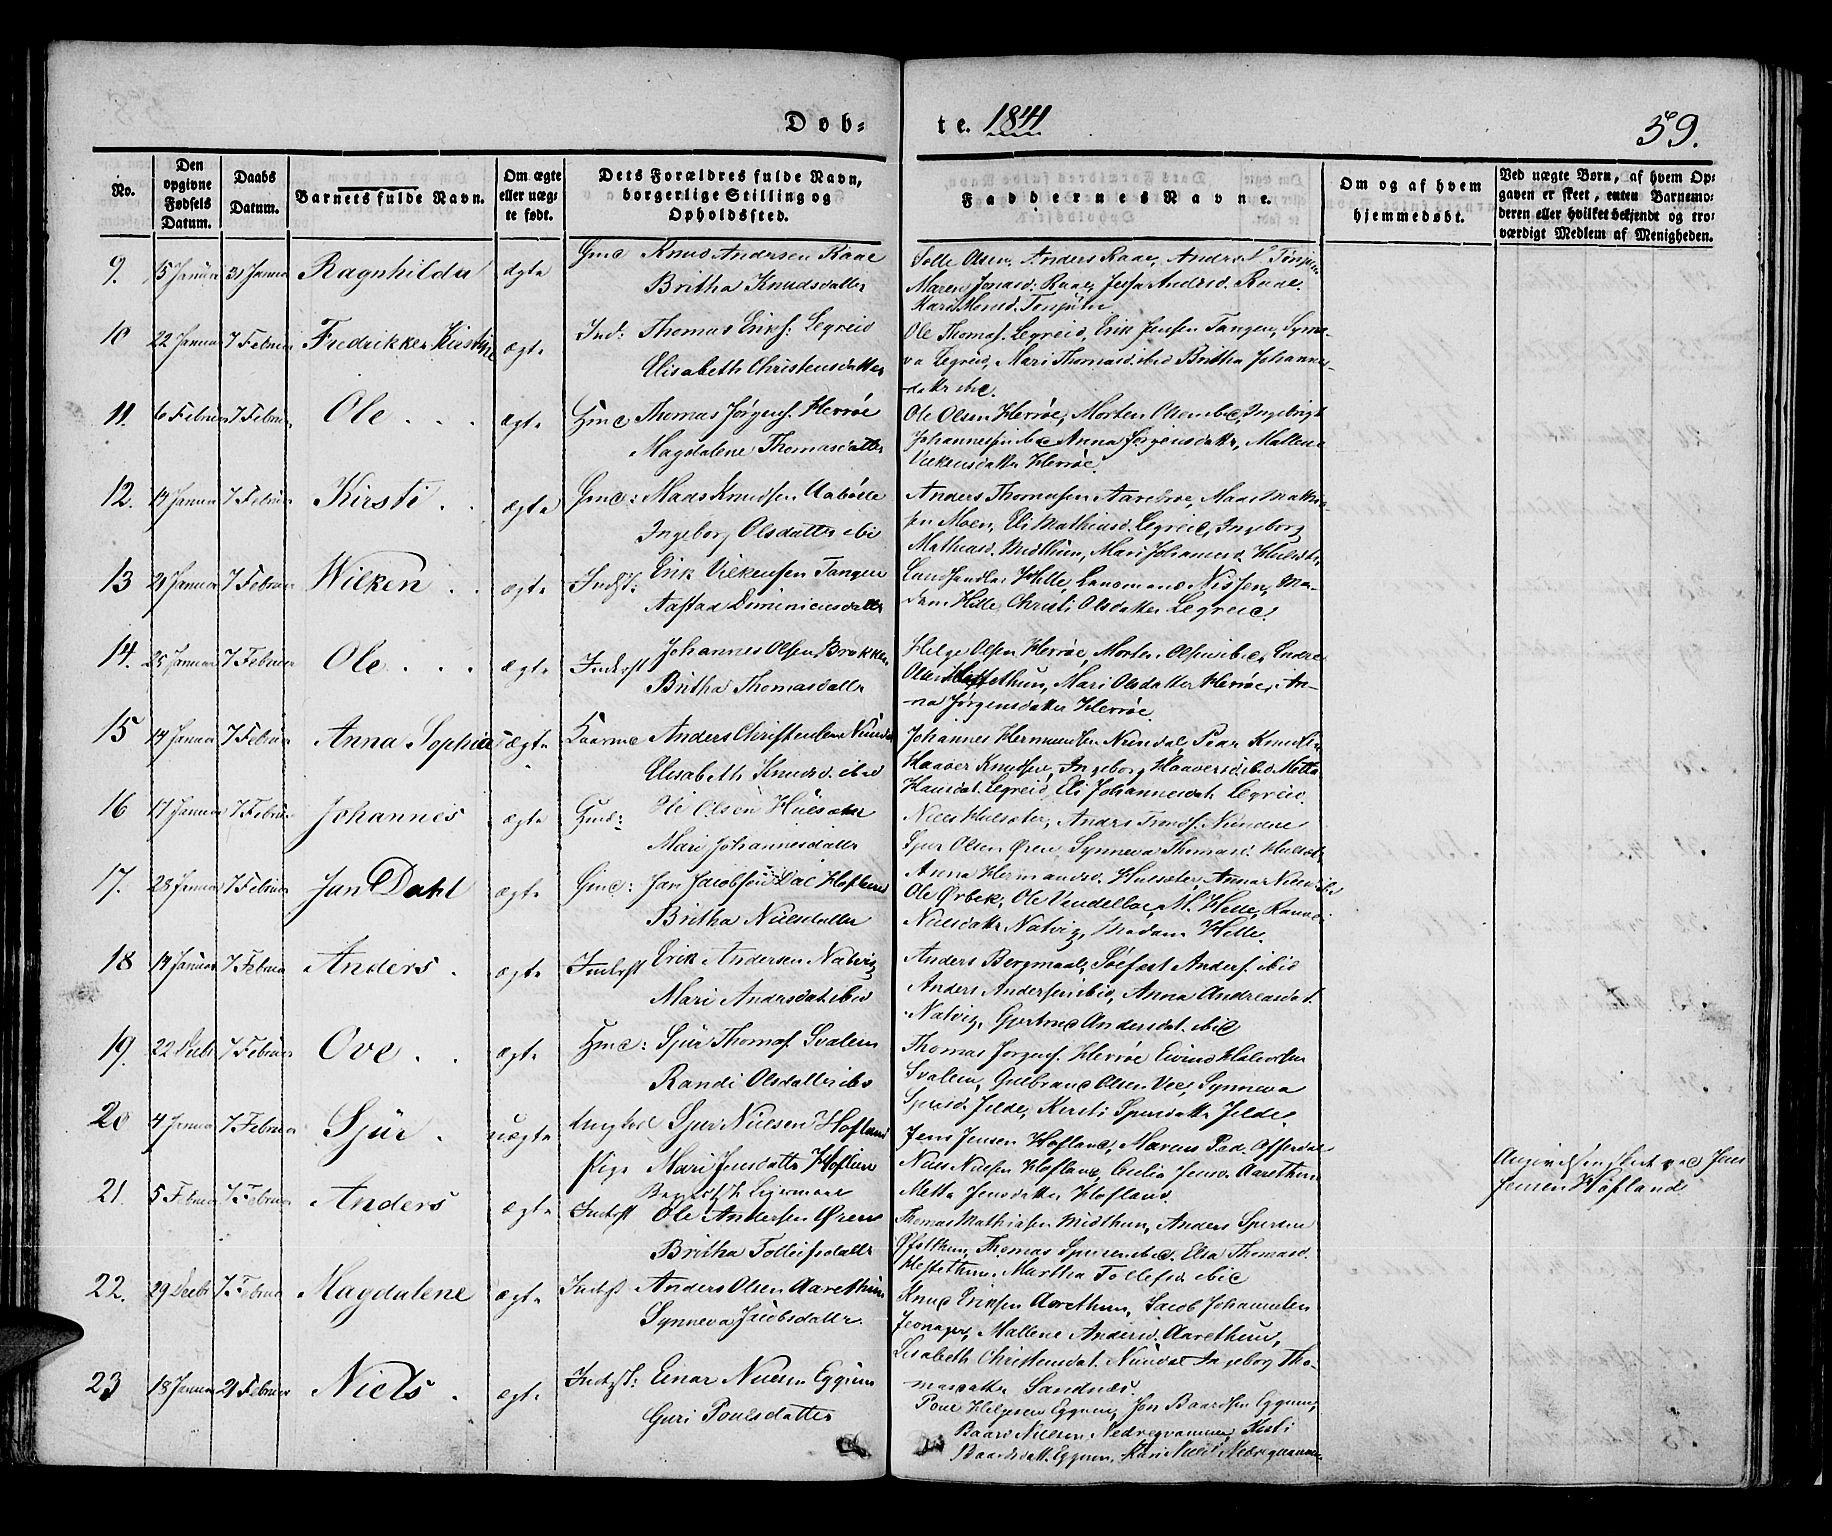 Døb-
te. 1841
59.
No.
Den opgivne Fødsels Datum.
Daabs Datum.
Barnets fulde Navn.
Om ægte eller uægte født.
Dets Forældres fulde Navn, borgerlige Stilling og Opholdssted.
Faddernes Navne.
Om og af hvem hjemmedøbt.
Ved uægte Born, af hvem Opgaven er skeet, enten Barnemoderen eller hvilket bekjendt og troværdigt Medlem af Menigheden.
9. 15 Januar 31 Januar Ragnhilda ægte Gmd Knud Andersen Raae
Britha Knudsdatter
Tolle Olsen, Anders Raae, Anders
Maren Jonasd. Raae, Andersd. Raae.
10 22 Januar 7 Februar Fredrikke Kirstine ægte Ind: Thomas Eriks: Legreid
Elisabeth Christensdatter
Ole Thomas. Legreid, Erik Jensen Tangen, Synne-
va Legreid, Mari Thomasd. ibid Britha Johannes-
datter ibid.
11. 6 Februar 7 Februar Ole ægte Gmd Thomas Jørgens. Herrøe
Magdalene Thomasdatter
Ole Olsen Herrøe, Morten Olsen ibid, Ingebrigt
Johannessen ibid Anna Jørgensdatter, Mallene
Vilkensdatter Herrøe.
12. 14 Januar 7 Februar Kirsti ægte Gmd: Mads Knudsen Aabølle
Ingeborg Olsdatter ibid
Anders Thomassen Aarebroe, Mads Mathia-
sen Moen, Eli Mathiasd. Legreid, Ingeborg
Mathiasd. Midthun, Mari Johannesd.
13 21 Januar 7 Februar Wilken ægte Indst: Erik Vilkensen Tangen
Aastad Diminicusdatter
Landhandler Hille, Lensmand Nissen, Ma-
dam Hille, Christi Olsdatter Legreid.
14. 25 Januar 7 Februar Ole ægte Inderst Johannes Olsen Brække
Britha Thomasdatter
Helge Olsen Herrøe, Morten Olsen ibid, Endre
Olsen Hestethun, Mari Olsdatter Herrøe, An-
na Jørgensdatter Herrøe.
15 14 Januar 7 Februar Anna Sophie ægte Kaarmd Anders Christensen Nundal
Elisabeth Knudsd. ibid
Johannes Hermundsen Nundal, Peder Knudsen
Haaver Knudsen, Ingeborg Haaversd. ibid Metta
Hansdat. Legreid, Eli Johannesdat. Legreid.
16 17 Januar 7 Februar Johannes ægte Gmd: Ole Olsen Hulsæter
Mari Johannesdatter
Niels Hulsæter, Anders Tronds. Nundal
Sjur Olsen Øren, Synneva Thomasd. Hulsæt.
17. 28 Januar 7 Februar Jan Dahl ægte Gmd: Jan Jacobsen Dal Hofland
Britha Nielsdatter
Anna Hermandsd. Hulsæter, Anna Nielsd. ibid
Ole Ørbek, Ole Vendelboe, M. Hille, Rannei
Nielsdatter Natvig, Madam Hille.
18 14 Januar 7 Februar Anders ægte Inderst Erik Andersen Natvig
Mari Andersdat. ibid
Anders Bergmaal, Søfast Anders. ibid
Anders Andersen ibid, Anna Andreasdat.
Natvig, Gjertrud Andersdat. ibid
19. 22 Decbr 7 Februar Ove ægte Gmd: Sjur Thomas. Svalem
Randi Olsdatter ibid
Thomas Jørgens. Herrøe Eivind Halvorsen
Svalem, Gulbrand Olsen Vee, Synneva
Spersd. Jelde, Kirsti Spersdatter Jelde.
20 4 Januar 7 Februar Sjur uægte Ungkarl Sjur Nielsen Hofland
Pige Mari Jensdatter Hofland
Begges 1ste Leiermaal
Jens Jensen Hofland, Marcus Ped. Offerdal
Niels Nielsen Hofland, Cecilia Jensd. Aarethun
Metta Jensdatter Hofland.
Angivelsen skeet ved Jens
Jensen Hofland
21. 5 Februar 7 Februar Anders ægte Inderst Ole Andersen Øren
Britha Tollefsdatter
Thomas Mathiasen Midthun, Anders Spersen
Øfstthun, Thomas Spersen ibid. Elsa Thomasd.
Hestethun, Martha Tollefsd. ibid
22. 29 Decbr 7 Februar Magdalene ægte Inderst Anders Olsen Aarethun
Synneva Jacobsdatter.
Knud Eriksen Aarethun, Jacob Johannesen
Mallene Andersd. Aarethun,
Lisabeth Christensdat. Nundal Ingeborg Tho-
masdatter Sandnæs.
23 18 Januar 21 Februar Niels ægte Inderst: Einar Nielsen Eggum
Guri Poulsdatter
Poul Helgesen Eggum, Jon Baardsen Eggum,
Baard Nielsen Nedreqvamme, Kirsti
Baardsdatt. Eggum, Kari Nielsd. Nedreqvamme